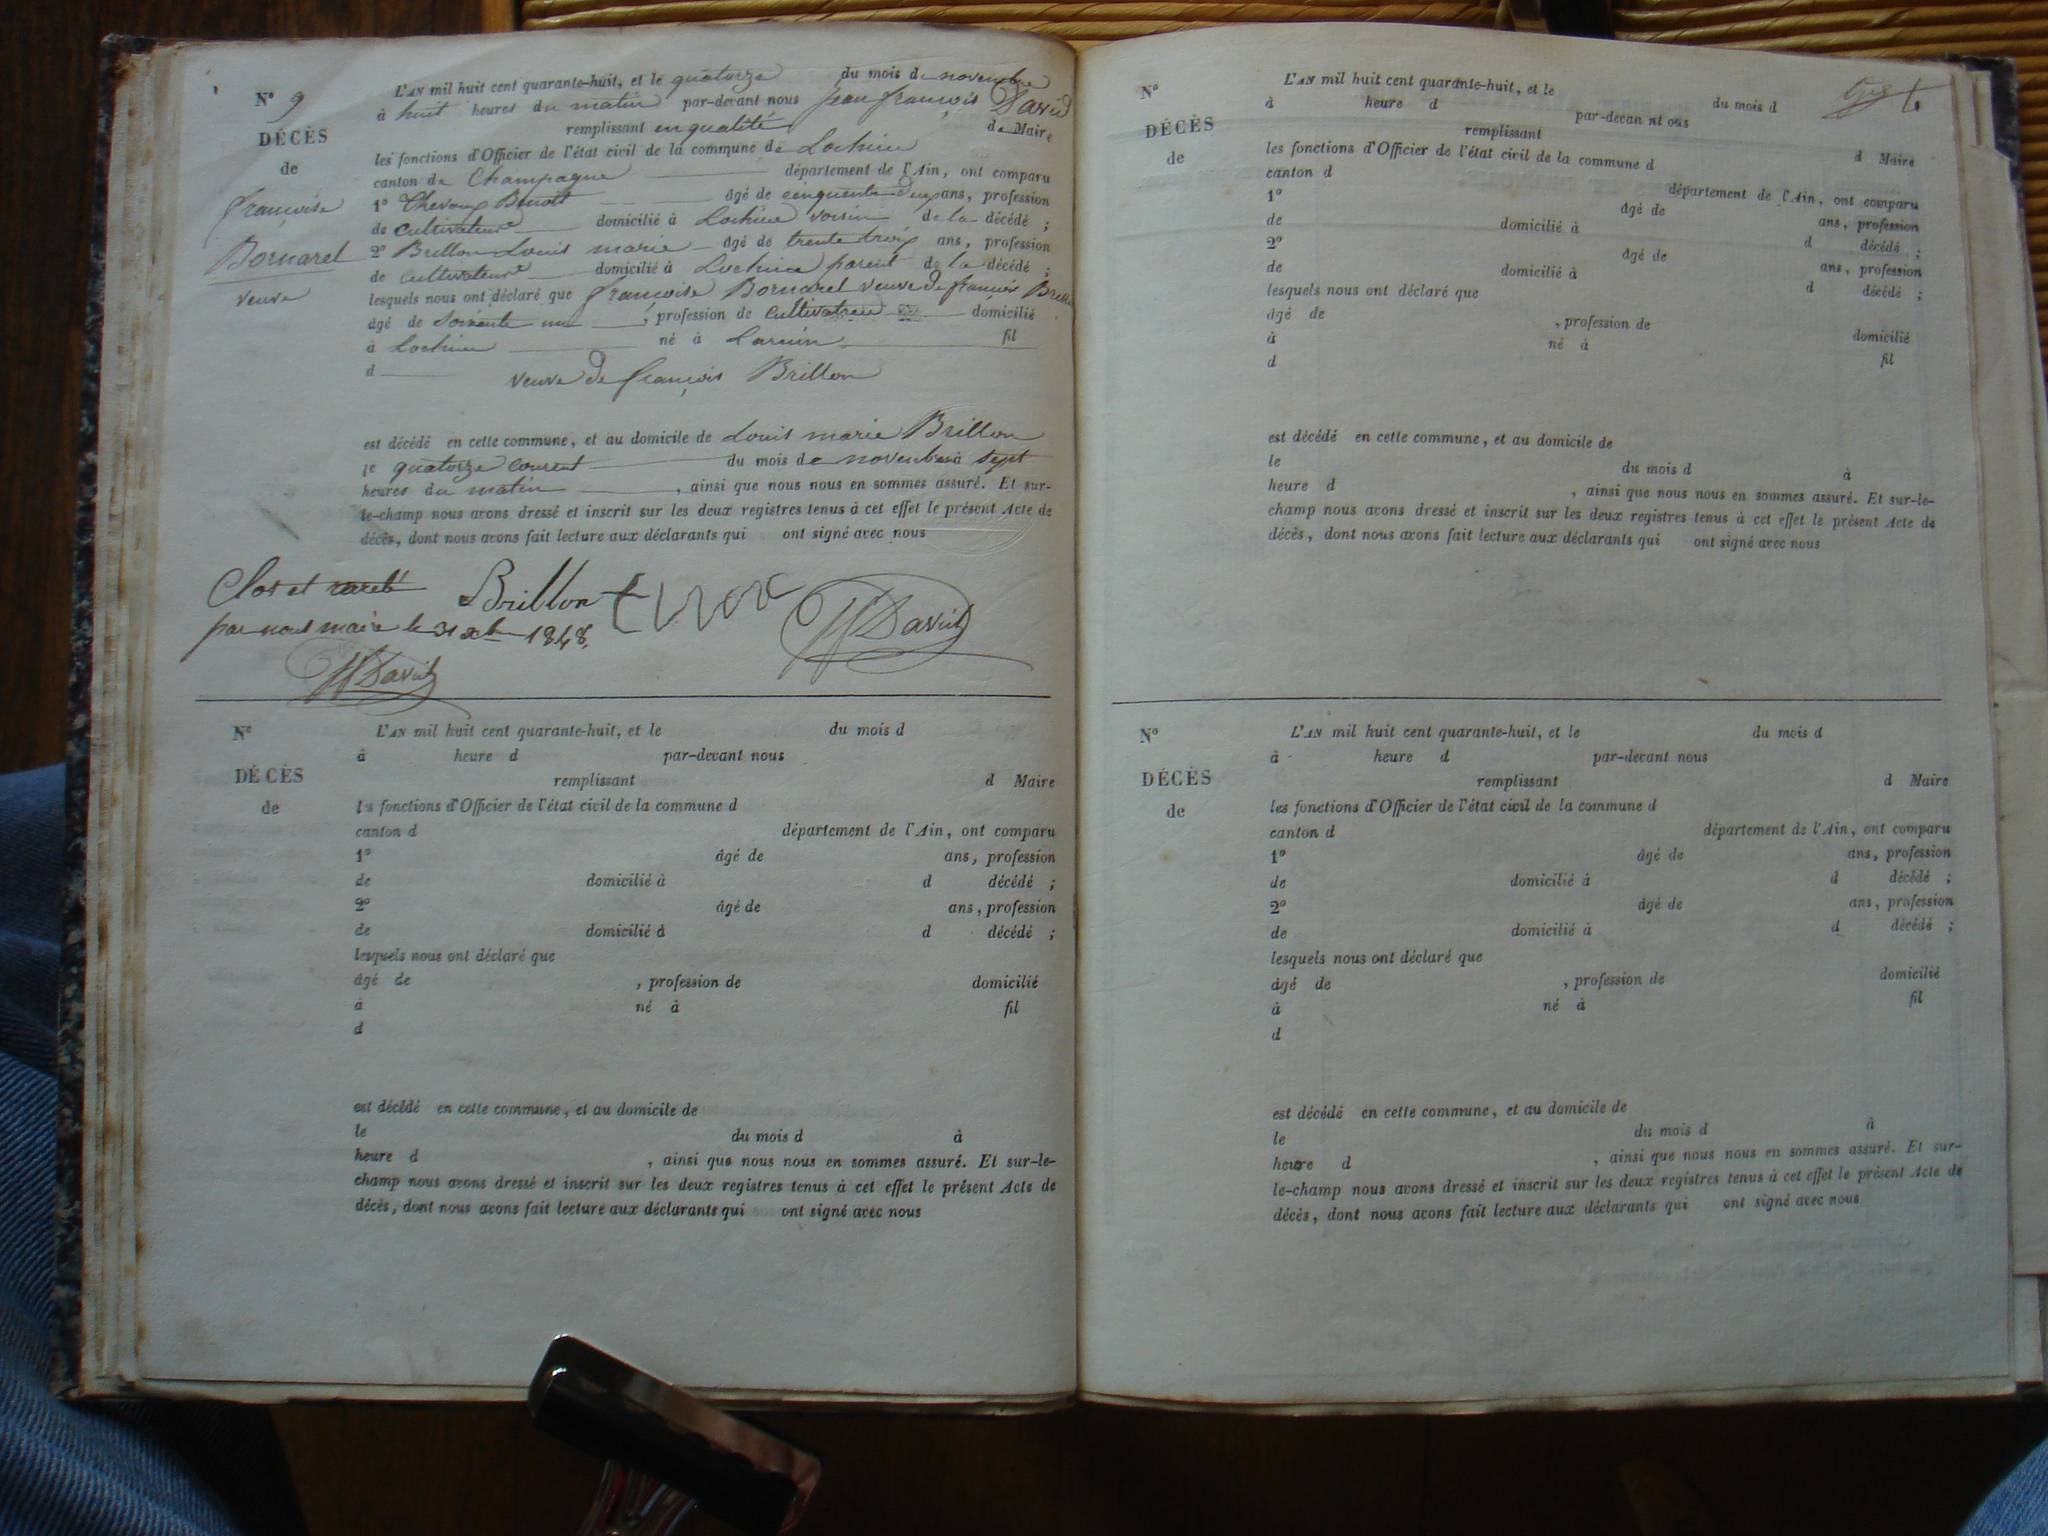 N° 9
DÉCÈS
de
françoise
Bornarel
veuve
L'AN mil huit cent quarante-huit, et le quatorze du mois de novembre
à huit heures du matin par-devant nous jean françois David
remplissant en qualité de Maire
les fonctions d'Officier de l'état civil de la commune de Lochieu
canton de Champagne département de l'Ain, ont comparu
1° Chevoux Benoit âgé de cinquante deux ans, profession
de cultivateur domicilié à Lochieu voisin de la décédé ;
2° Brillon Louis marie âgé de trente trois ans, profession
de cultivateur domicilié à Lochieu parent de la décédé ;
lesquels nous ont déclaré que françoise Bornarel veuve de françois Brillon
âgé de soixante un , profession de cultivatrice domicilié
à Lochieu né à fil
d
veuve de françois Brillon
est décédé en cette commune, et au domicile de Louis marie Brillon
le quatorze courent du mois de novembre à sept
heures du matin , ainsi que nous nous en sommes assuré. Et sur-
le-champ nous avons dressé et inscrit sur les deux registres tenus à cet effet le présent Acte de
décès, dont nous avons fait lecture aux déclarants qui ont signé avec nous
Clos et
par nous maire le 31 xbre 1848.
Brillon
David
David
N°
DÉCÈS
de
L'AN mil huit cent quarante-huit, et le du mois d
à heure d par-devant nous
remplissant d Maire
les fonctions d'Officier de l'état civil de la commune d
canton d département de l'Ain, ont comparu
1° âgé de ans, profession
de domicilié à d décédé ;
2° âgé de ans, profession
de domicilié à d décédé ;
lesquels nous ont déclaré que
âgé de , profession de domicilié
à né à fil
d
est décédé en cette commune, et au domicile de
le du mois d à
heure d , ainsi que nous nous en sommes assuré. Et sur-le-
champ nous avons dressé et inscrit sur les deux registres tenus à cet effet le présent Acte de
décès, dont nous avons fait lecture aux déclarants qui ont signé avec nous
N°
DÉCÈS
de
L'AN mil huit cent quarante-huit, et le du mois d
à heure d par-devan nt ous
remplissant d Maire
les fonctions d'Officier de l'état civil de la commune d
canton d département de l'Ain, ont comparu
1° âgé de ans, profession
de domicilié à d décédé ;
2° âgé de ans, profession
de domicilié à d décédé ;
lesquels nous ont déclaré que
âgé de , profession de domicilié
à né à fil
d
est décédé en cette commune, et au domicile de
le du mois d à
heure d , ainsi que nous nous en sommes assuré. Et sur-le-
champ nous avons dressé et inscrit sur les deux registres tenus à cet effet le présent Acte de
décès, dont nous avons fait lecture aux déclarants qui ont signé avec nous
N°
DÉCÈS
de
L'AN mil huit cent quarante-huit, et le du mois d
à heure d par-devant nous
remplissant d Maire
les fonctions d'Officier de l'état civil de la commune d
canton d département de l'Ain, ont comparu
1° âgé de ans, profession
de domicilié à d décédé ;
2° âgé de ans, profession
de domicilié à d décédé ;
lesquels nous ont déclaré que
âgé de , profession de domicilié
à né à fil
d
est décédé en cette commune, et au domicile de
le du mois d à
heure d , ainsi que nous nous en sommes assuré. Et sur-
le-champ nous avons dressé et inscrit sur les deux registres tenus à cet effet le présent Acte de
décès, dont nous avons fait lecture aux déclarants qui ont signé avec nous